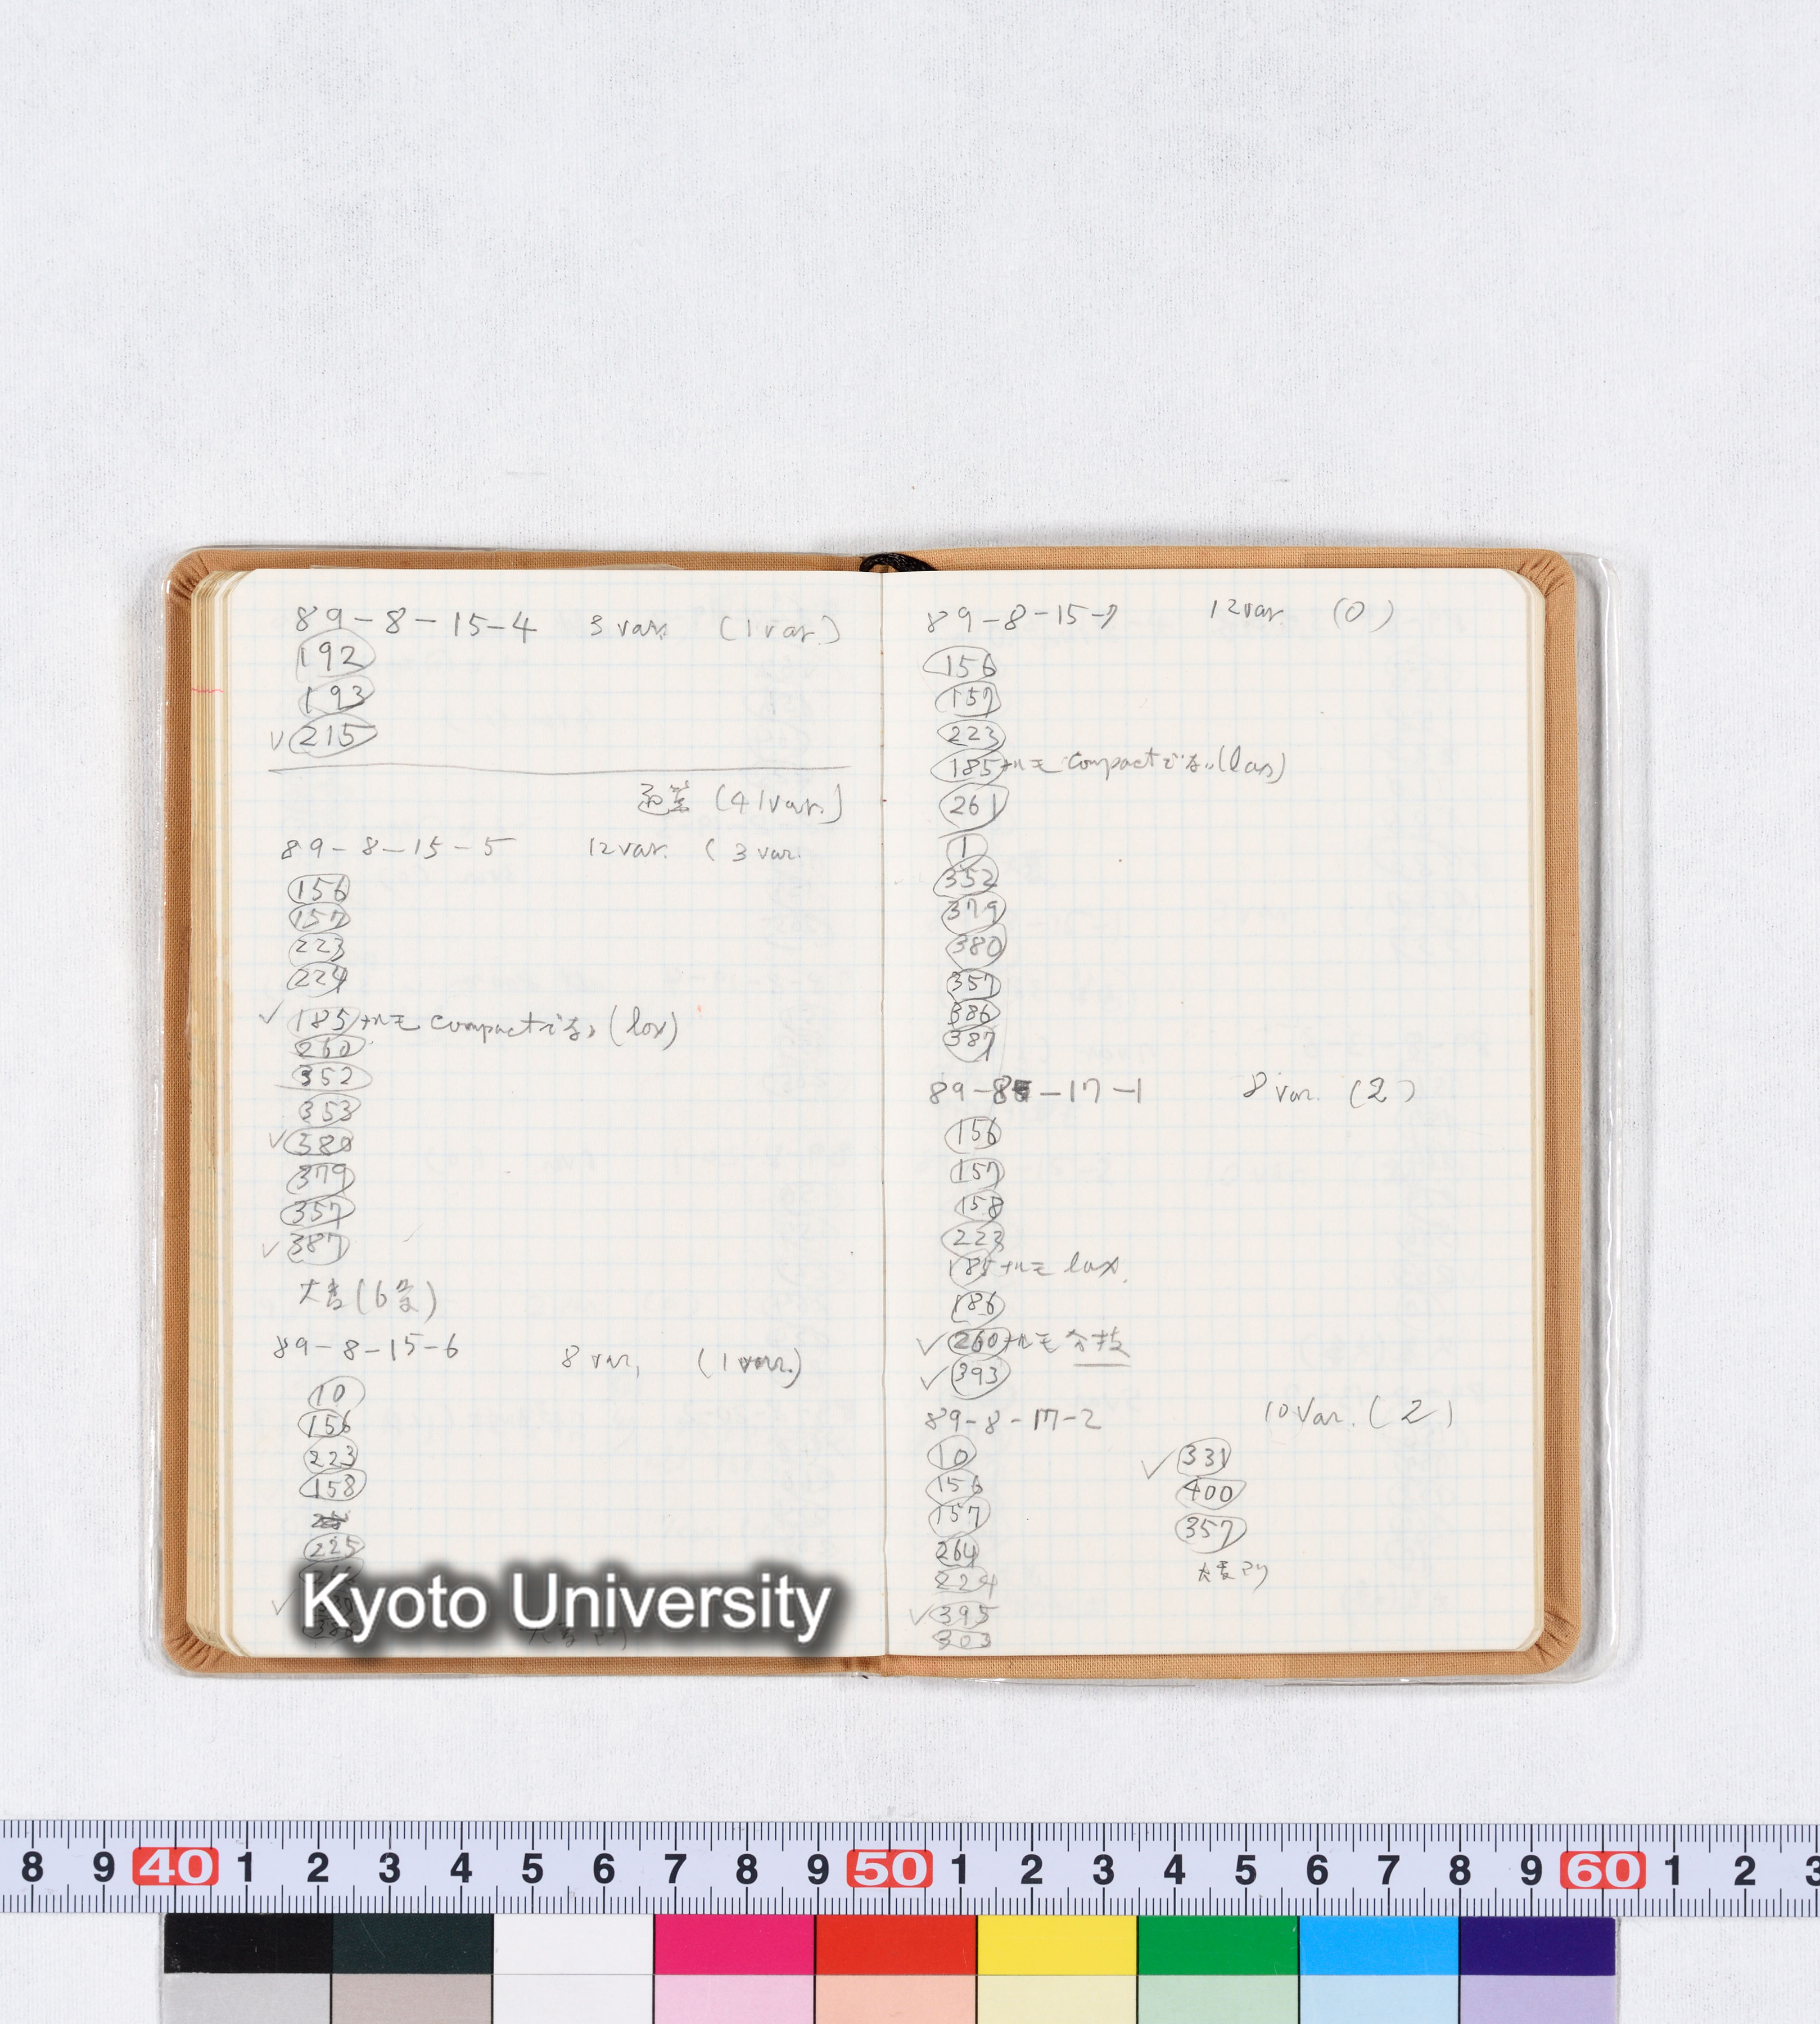 89-8-15-4 3 var. (1 var.)
192
193
✓ 215
(41 var.)
89-8-15-5 12 var. (3 var.
156
157
223
224
✓ 185 compact (lax)
260
352
353
✓ 380
379
357
✓ 387
大麦(6)
89-8-15-6 8 var. (1 var.)
10
156
223
158
225
✓
Kyoto University
89-8-15-7 12 var (0)
156
157
223
185 compact (lax)
261
1
352
379
380
357
386
387
89-8-17-1 8 var. (2)
156
157
158
223
185 lax.
186
✓ 260 分枝
✓ 393
89-8-17-2 10 Var. (2)
10
156
157
264
224
✓ 395
303
✓ 331
400
357
大麦アリ
8 9 40 1 2 3 4 5 6 7 8 9 50 1 2 3 4 5 6 7 8 9 60 1 2 3